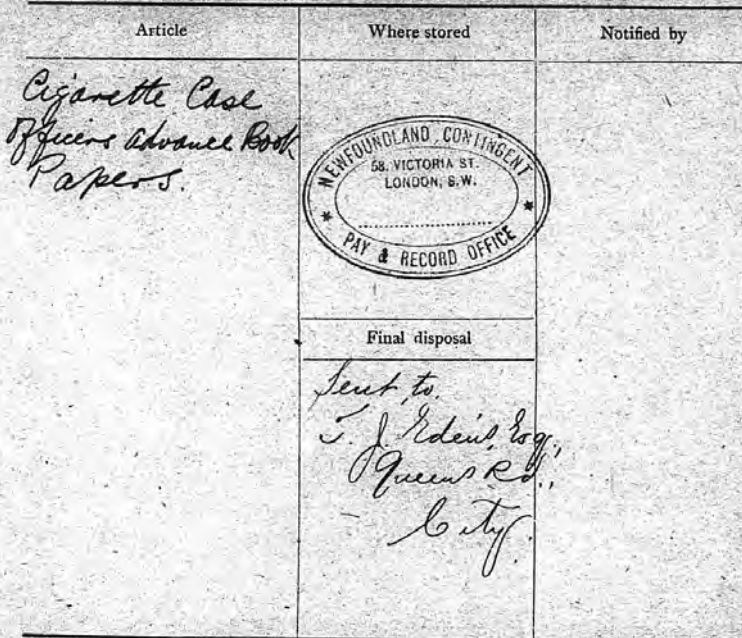 Article
Where stored
Notified by
Cigarette Case
Officers Advance Book
Papers.
NEWFOUNDLAND CONTINGENT
58. VICTORIA ST.
LONDON, S.W.
PAY & RECORD OFFICE
Final disposal
Sent to.
T. J. Edens, Esq.,
Queens Rd.,
City.